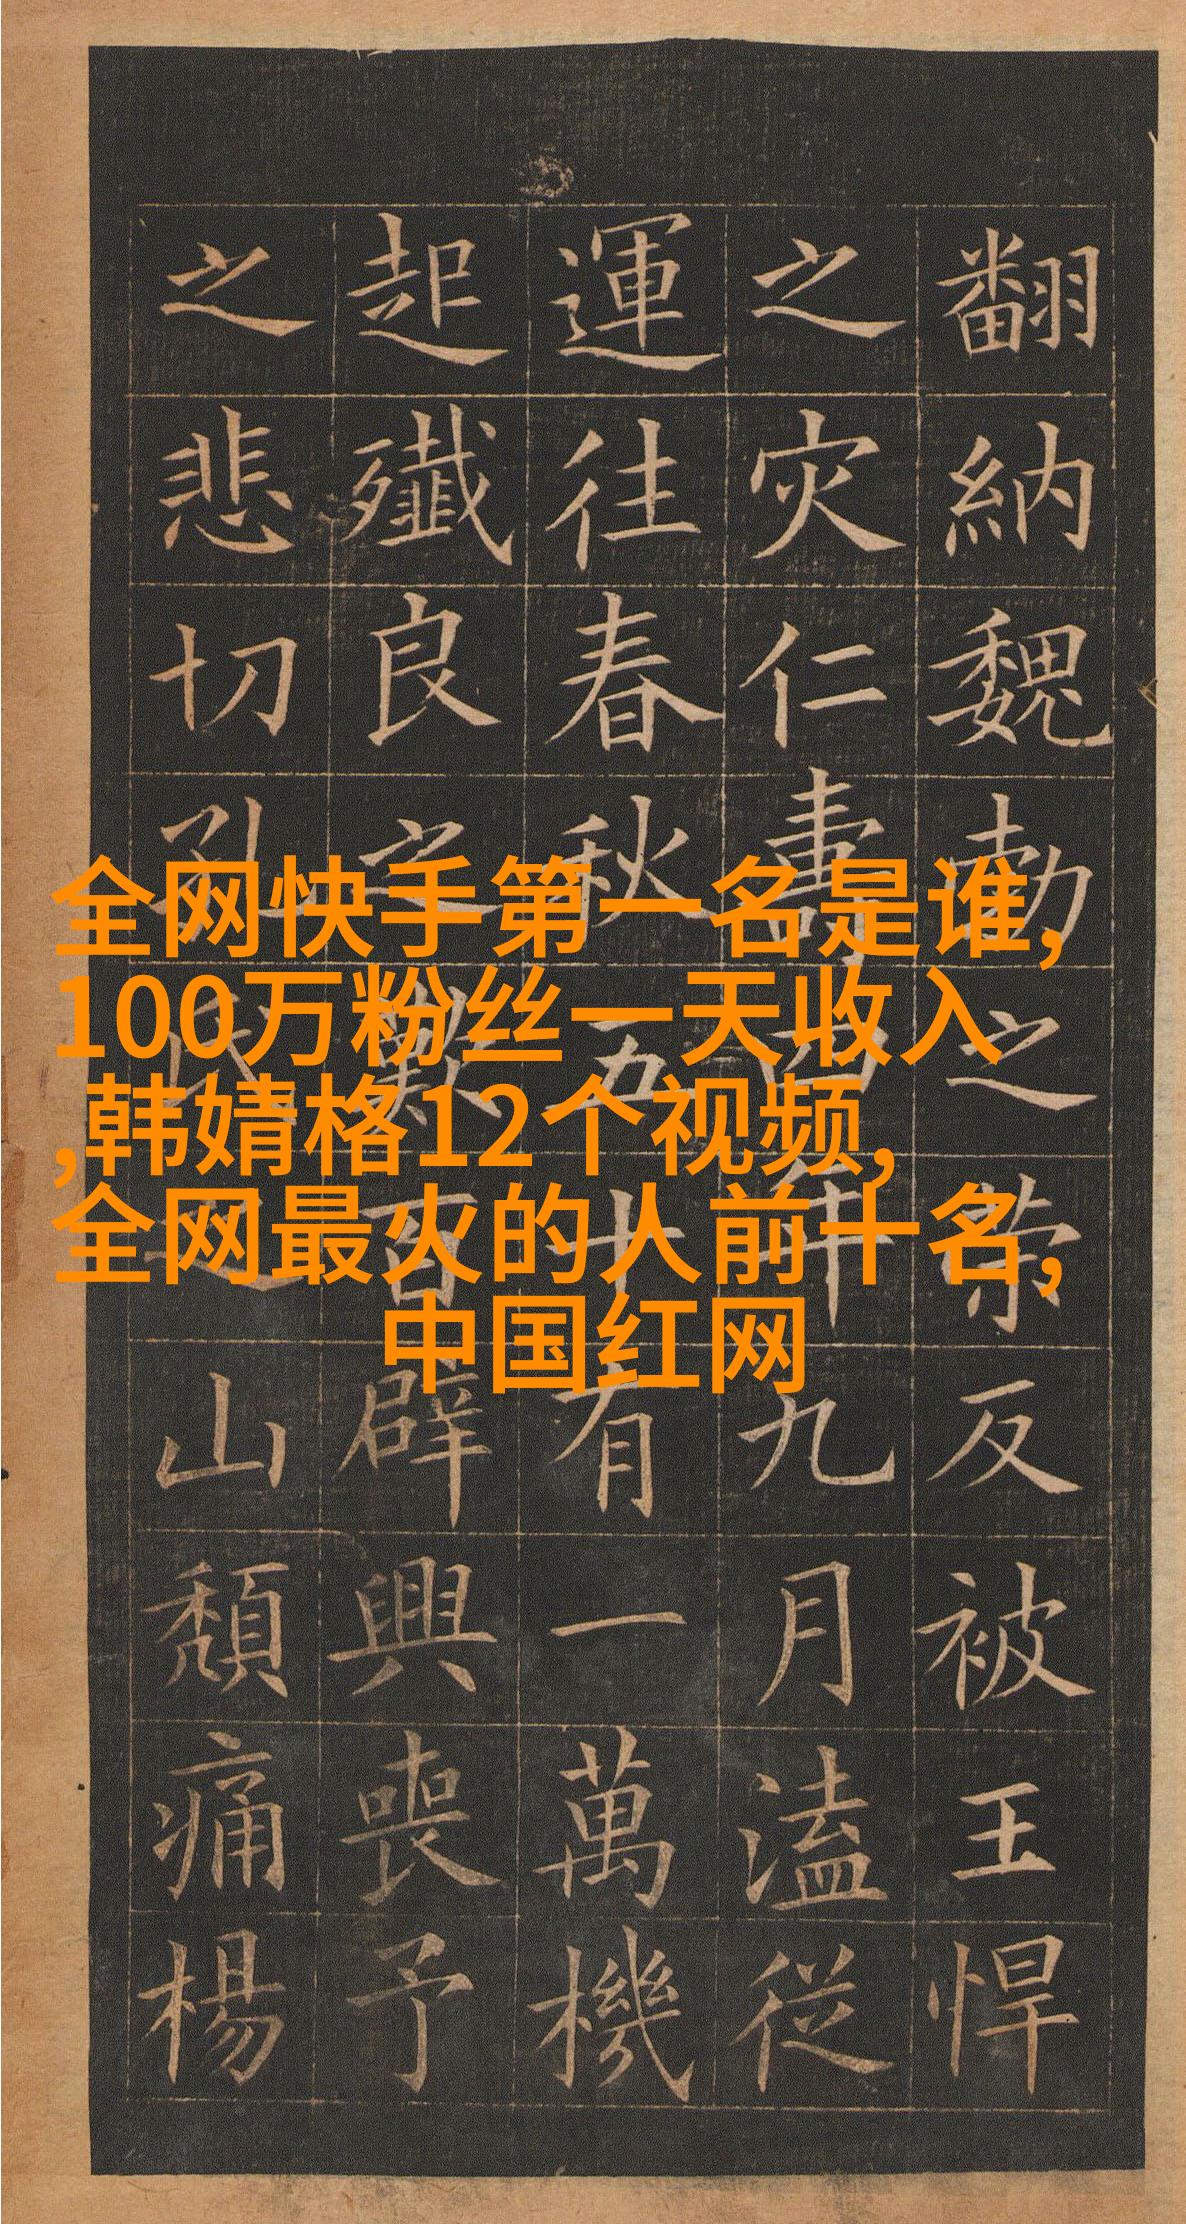 全网快手第一名是谁,
100万粉丝一天收入
,韩婧格12个视频,
全网最火的人前十名,
中国红网
翻納魏勃之策反被王悍
之灾仁壽年九月溘從
運往春秋五十有一萬機
起殲良之歎百辟興喪予
之悲切孔山頹痛楊